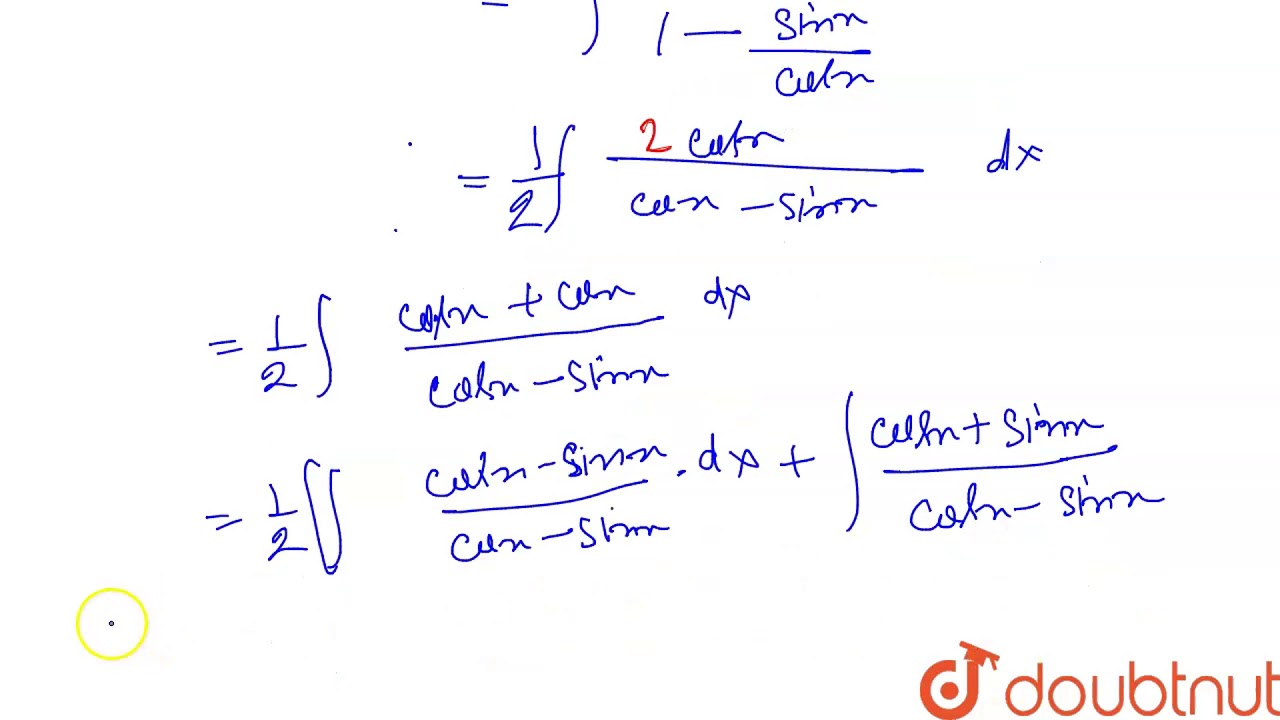 = ∫ 1 - sin x / cos x
= 1/2 ∫ 2 cos x / cos x - sin x dx
= 1/2 ∫ cos x + cos x / cos x - sin x dx
= 1/2 ∫ cos x - sin x / cos x - sin x . dx + ∫ cos x + sin x / cos x - sin x
doubtnut